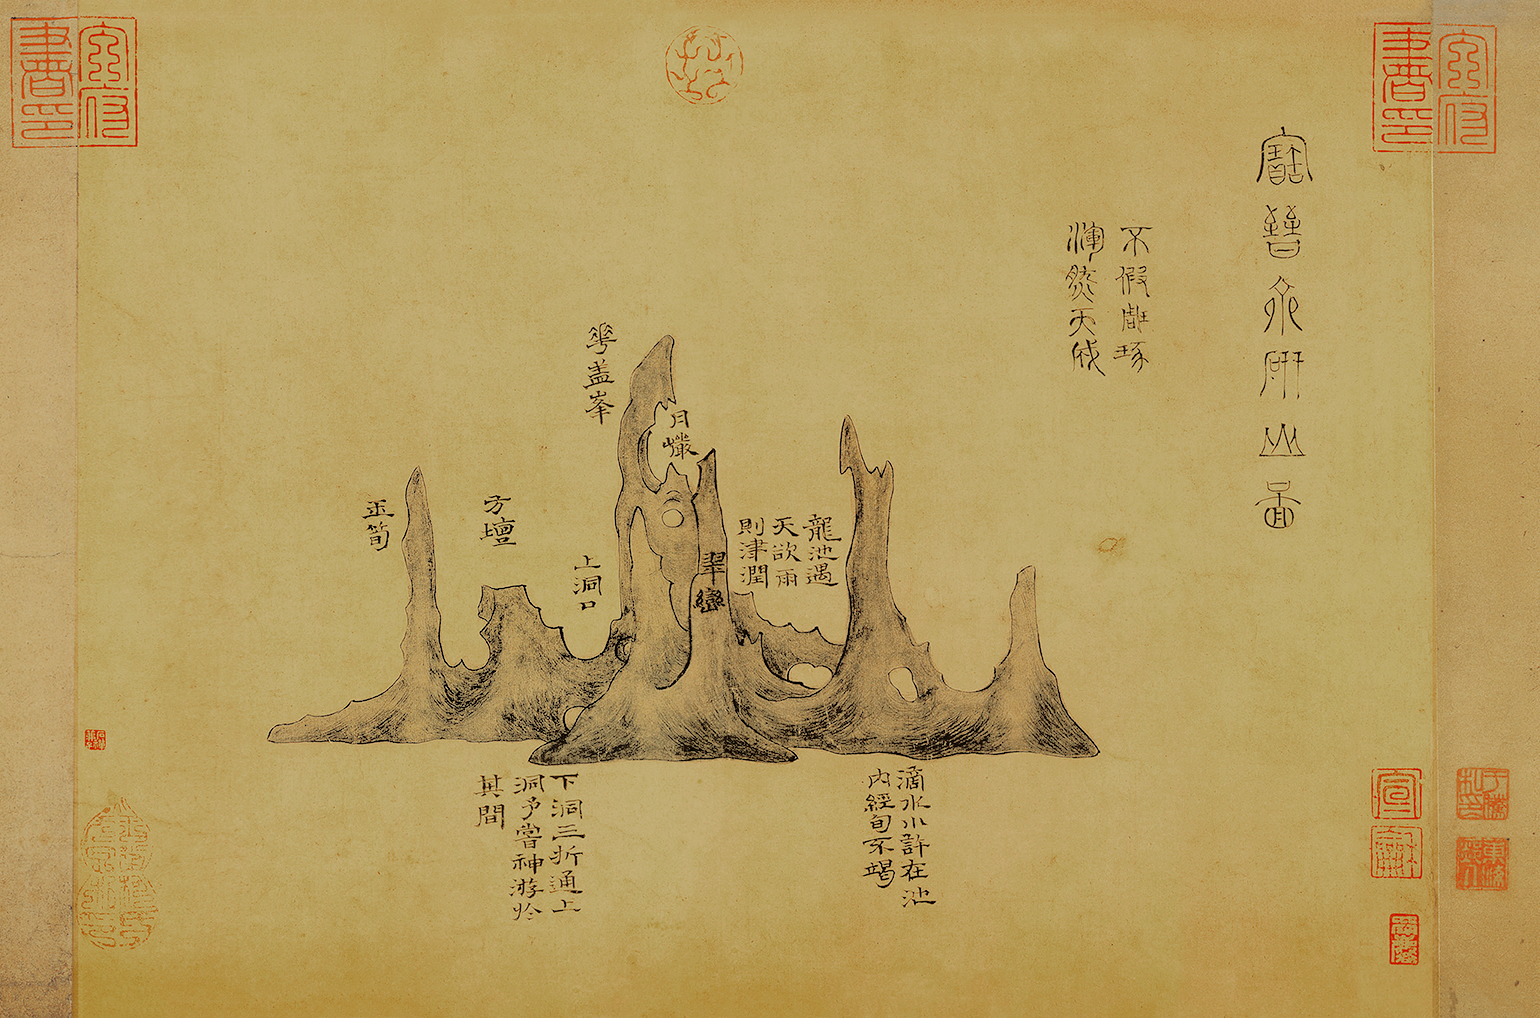 寶晉齋研山圖
不假雕琢
渾然天成
龍池遇
天欲雨
則津潤
翠巒
月巖
華蓋峯
上洞口
方壇
玉筍
滴水小許在池
内經旬不竭
下洞三折通上
洞予嘗神游於
其間